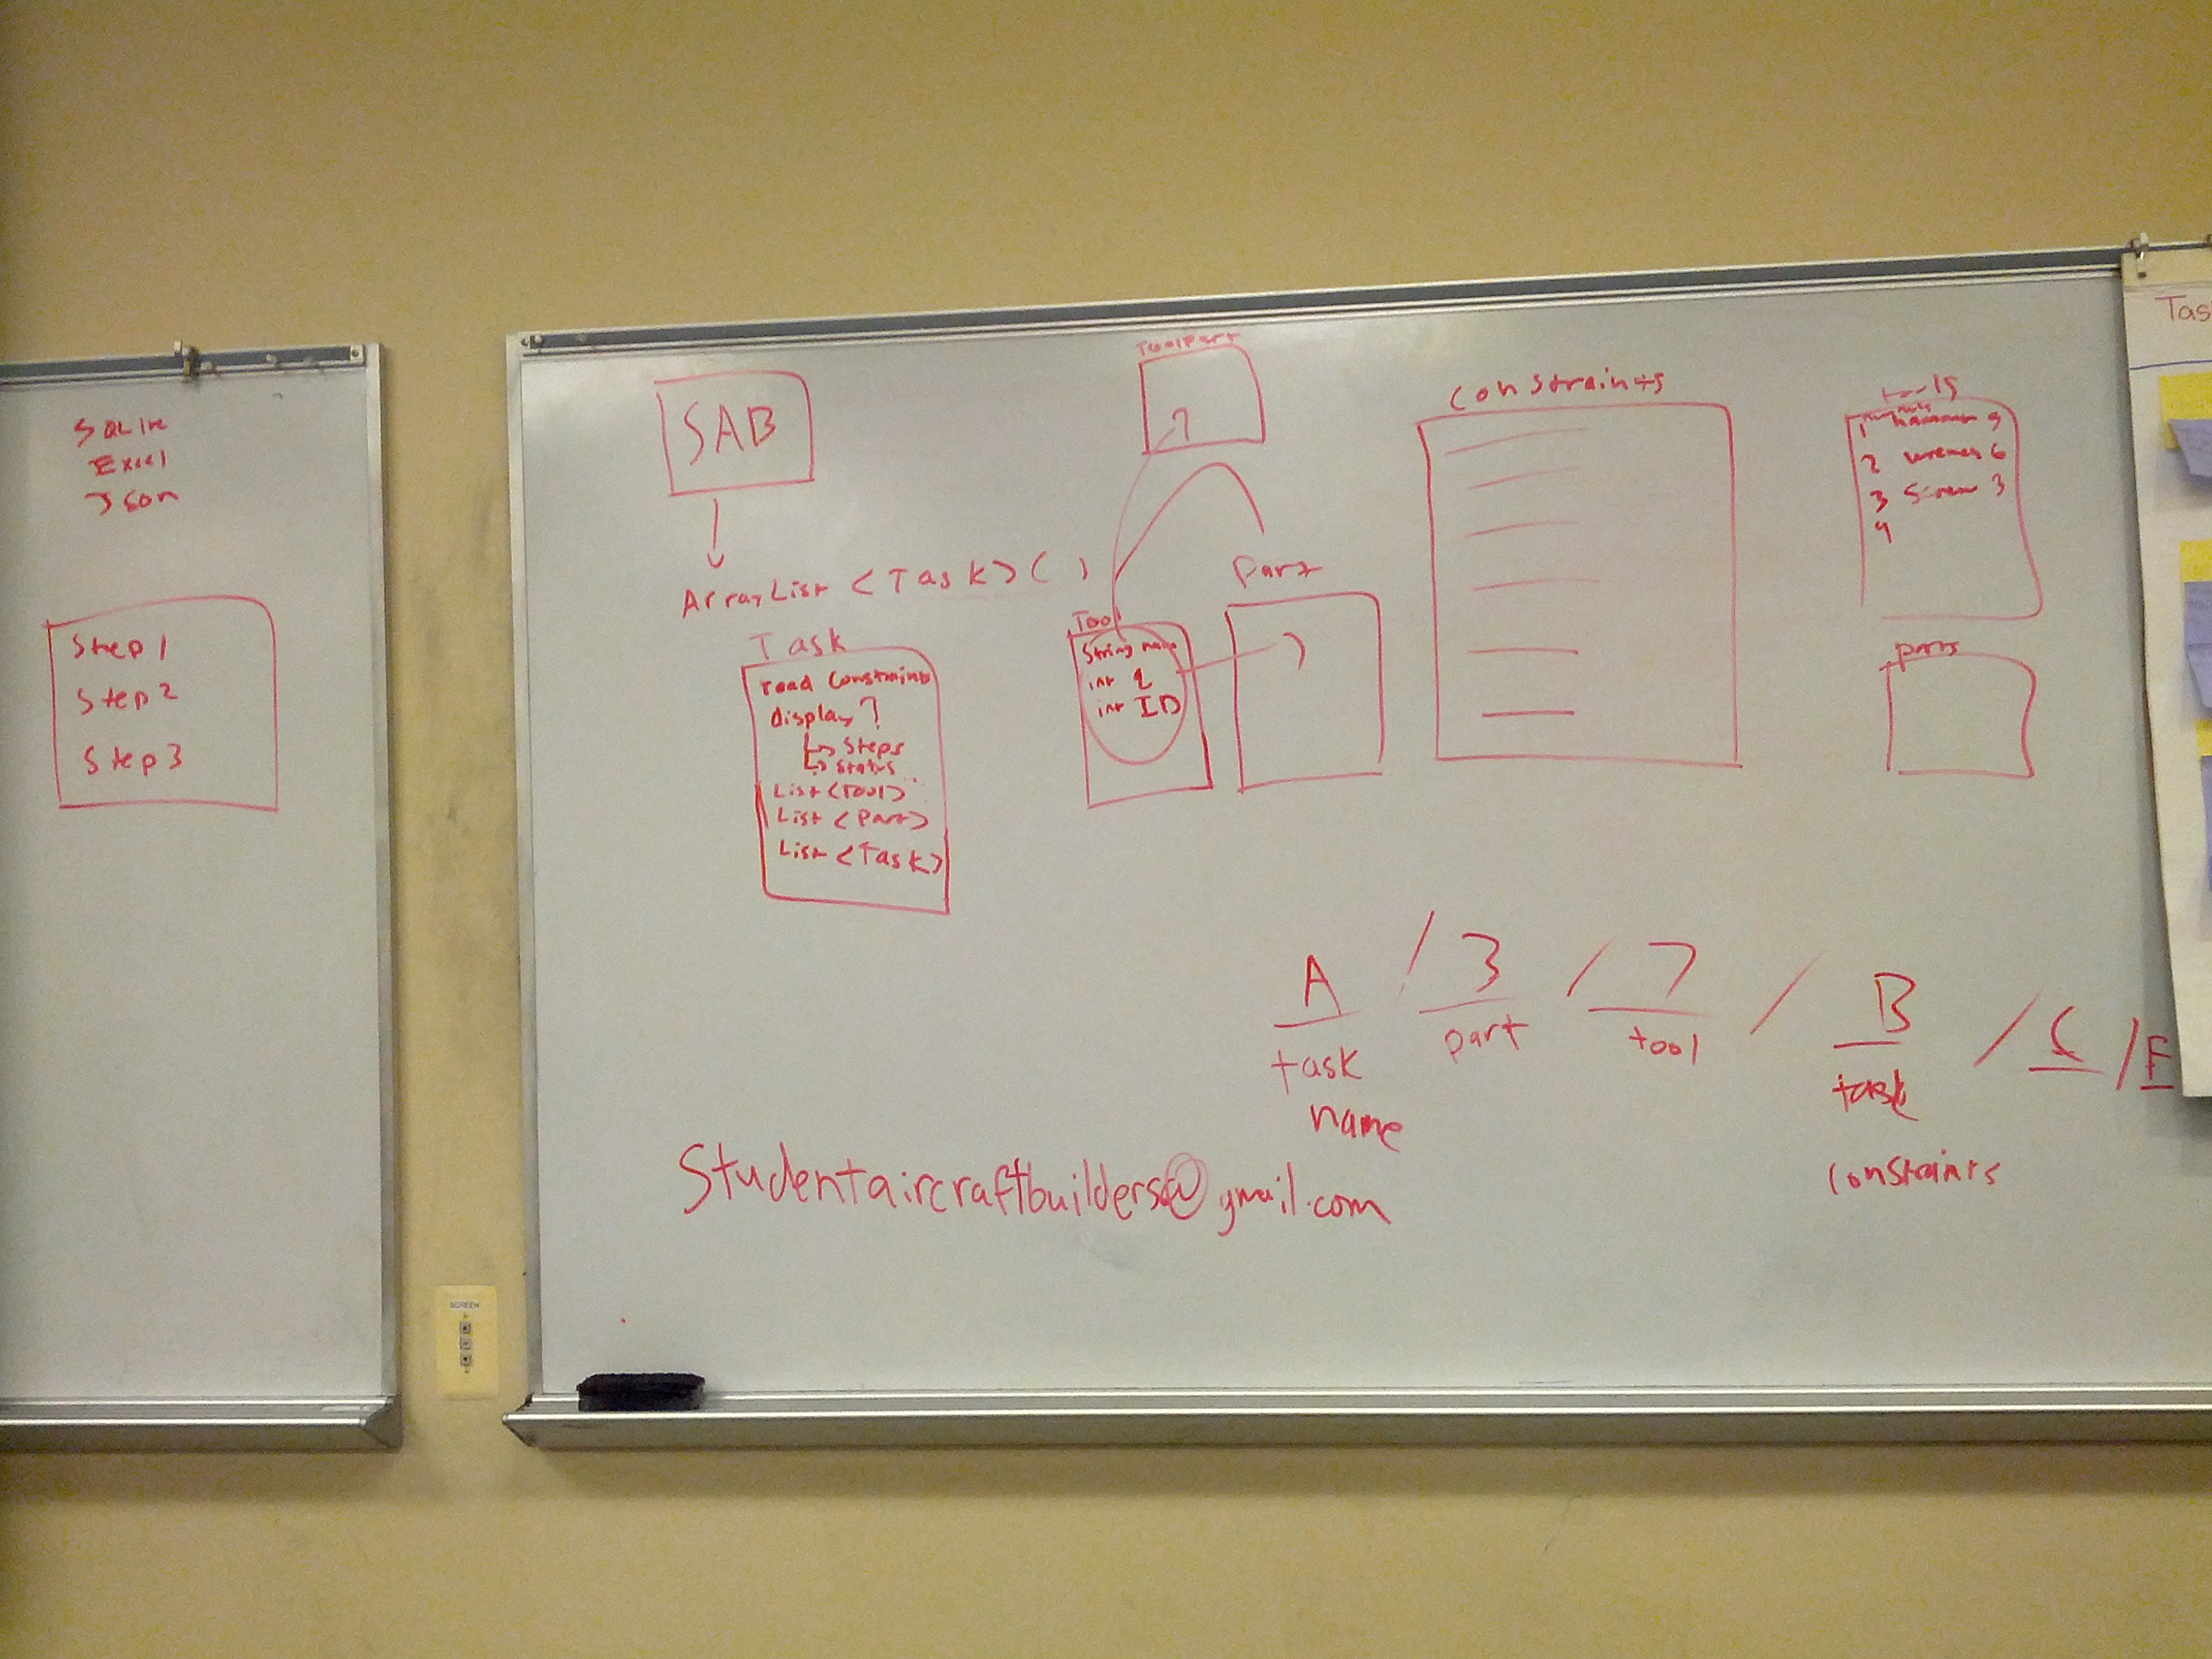 Excel
Json
Step 1
Step 2
Step 3
SAB
ArrayList <Task>()
Task
read constraints
display ?
↳ Steps
↳ status
List<Tool>
List <Part>
List <Task>
ToolPart
Tool
String name
int q
int ID
Part
Constraints
tools
1 hammer 9
2 wrench 6
3 Screw 3
4
parts
A / 3 / 7 / B / C / F
task part tool task
name constraints
Studentaircraftbuilders@gmail.com
SCREEN
Tas